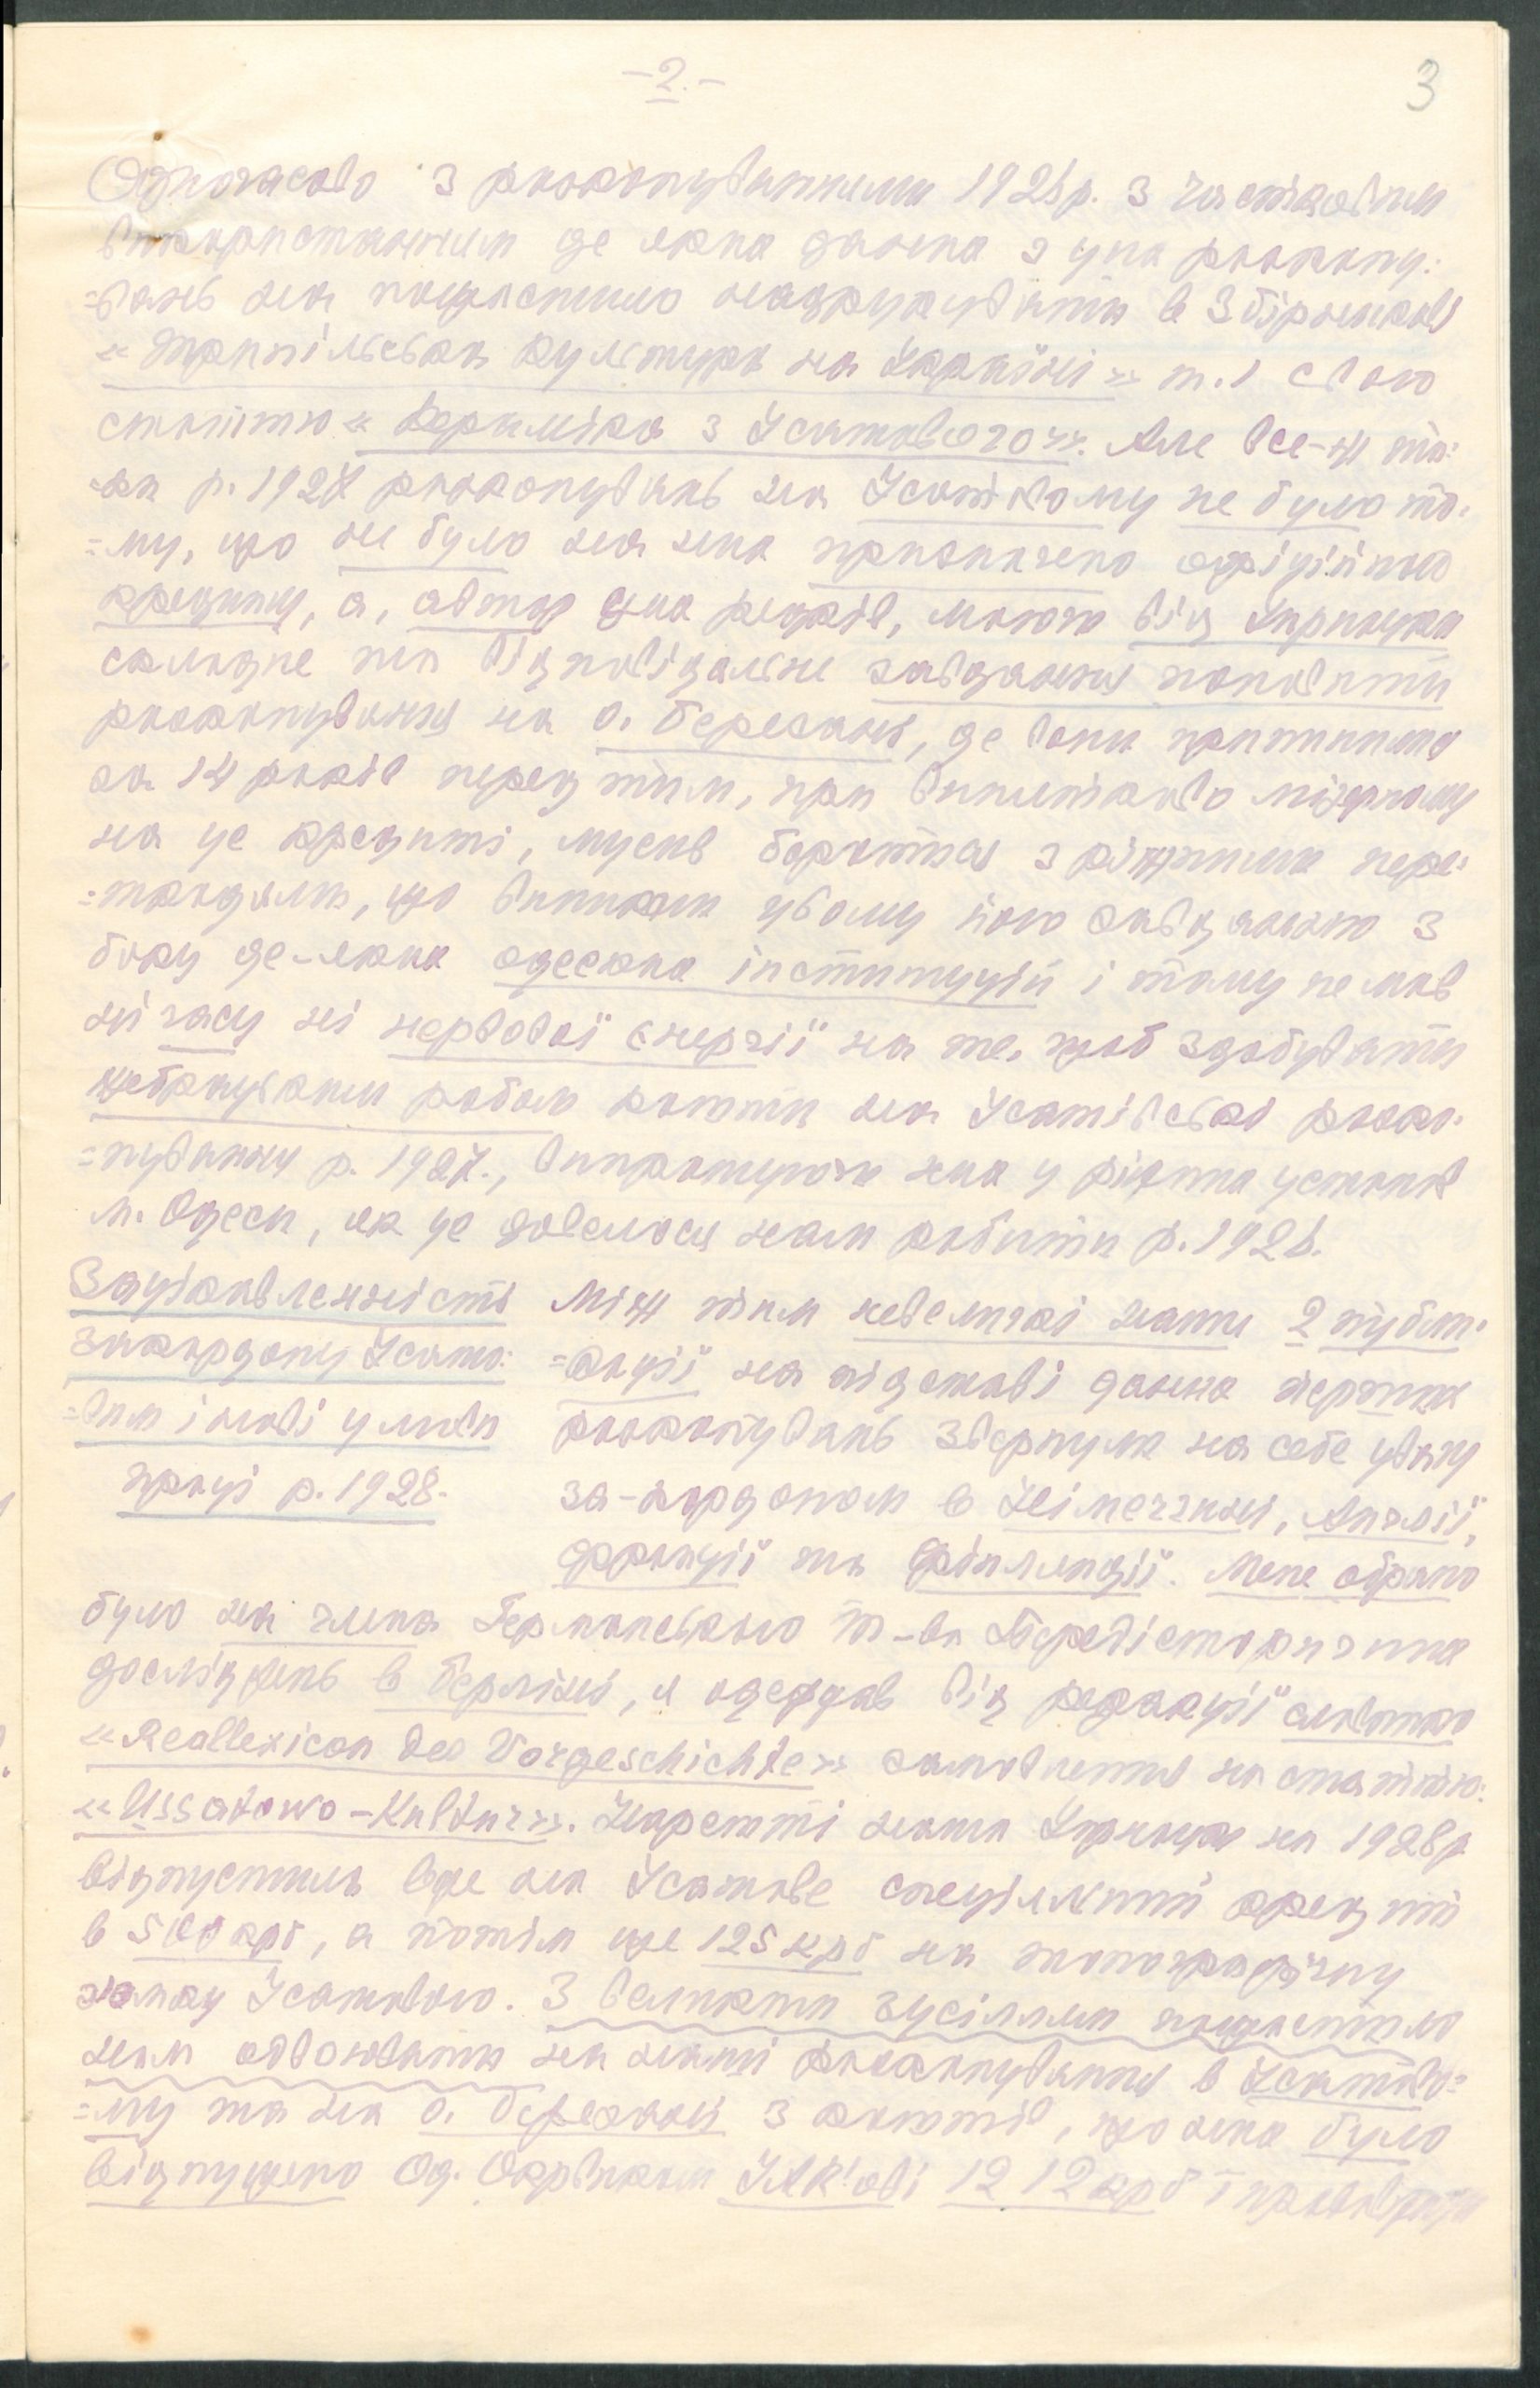 -2.-
3
Одночасово з розкопуваннями 1926р. з частковим
використанням де яких даних з цих розкопу-
=вань нам пощастило надрукувати в Збірникові
«Трипільська культура на Україні» т. 1 свою
статтю «Кераміка з Усатового». Але все-ж та-
=ки р. 1927 розкопувань на Усатовому не було то-
=му, що не було на них призначено офіційного
кредиту, а, автор цих рядків, маючи від Укрнауки
складне та відповідальне завдання поновити
розкопування на о. Березані, де вони припинилися
за 14 років перед тим, при виключно мізерному
на це кредиті, мусив боротися з ріжними пере-
=шкодами, що виникли цьому його завданню з
боку де-яких одеських інституцій і тому не мав
ні часу ні нервової енергії на те, щоб здобувати
жебрацьким робом кошти на Усатівські розко-
=пування р. 1927., випрохуючи їх у ріжних установ
м. Одеси, як це довелося нам робити р. 1926.
Зацікавленність
закордону Усато-
=вим і нові умови
праці р. 1928.
Між тим невеличкі наши 2 публі-
=кації на підставі даних перших
розкопувань звернули на себе увагу
за-кордоном в Німеччині, Англії,
Франції та Фінляндії. Мене обрано
було на члена Германського Т-ва Передісторичних
досліджень в Берліні, я одержав від редакції словника
«Reallexicon der Vorgeschichte» замовлення на статтю:
«Ussatowo-Kultur». Нарешті наша Укрнаука на 1928р
відпустила вже на Усатове спеціяльний кредит
в 500 крб, а потім ще 125 крб на топографічну
зйомку Усатового. З великими зусіллями пощастило
нам одвоювати на наші розкопування в Усатово-
=му та на о. Березані з коштів, що їх було
відпущено Од. Окрвиком УАК'ові 1212 крб і